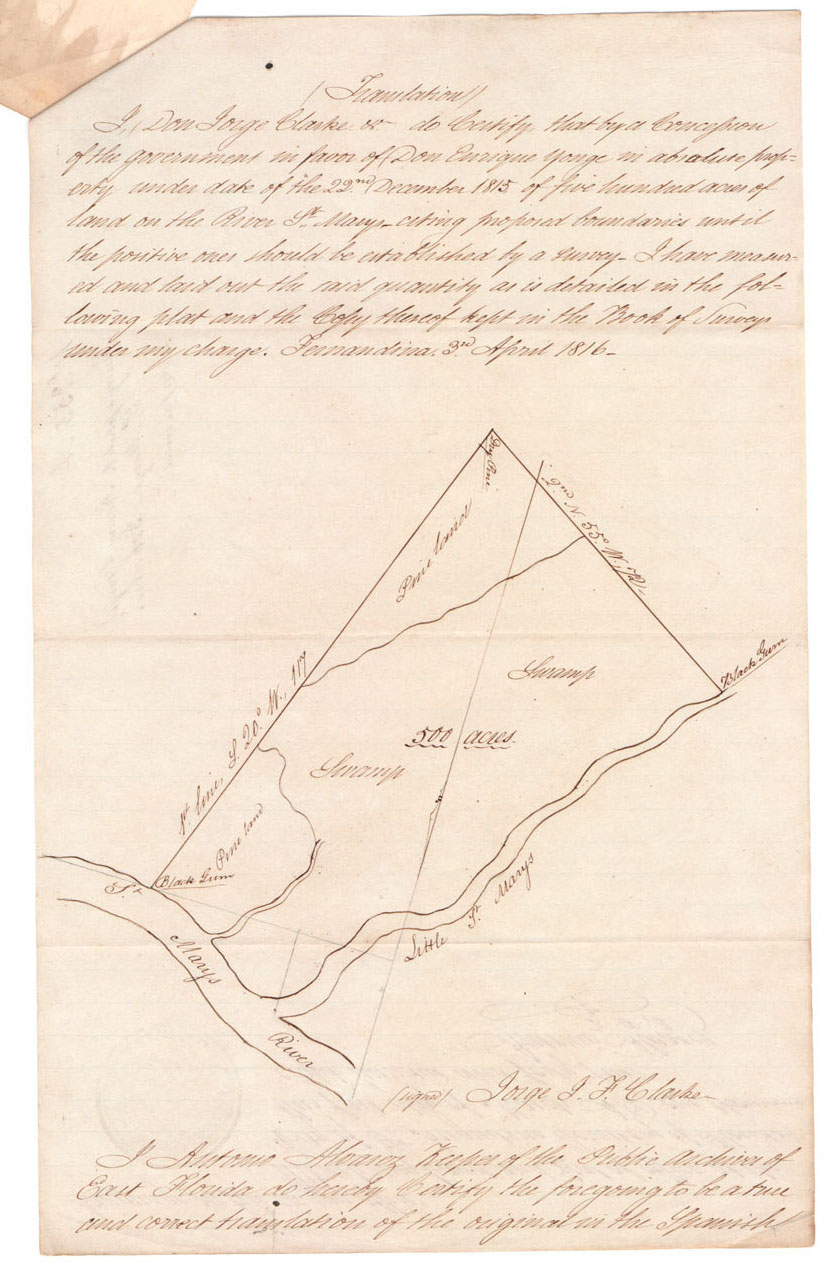 (Translation)
I, Don Jorge Clarke &c do Certify that by a Concession
of the government in favor of Don Enrique Yonge in absolute prop-
erty under date of the 22nd December 1815 of five hundred acres of
land on the River St. Marys - citing proposed boundaries until
the positive ones should be established by a survey - I have measur-
ed and laid out the said quantity as is detailed in the fol-
lowing plat and the Copy thereof kept in the Book of Surveys
under my charge. Fernandina. 3rd April 1816 -
Pine
2nd N. 55° W.
Pine land
Black Gum
Swamp
1st line, S. 20° W., 117
500 acres.
Swamp
Pine land
Black Gum
St.
Little St. Marys
Marys
River
(signed) Jorge J. F. Clarke
I Antonio Alvarez Keeper of the Public Archives of
East Florida do hereby Certify the foregoing to be a true
and correct translation of the original in the Spanish